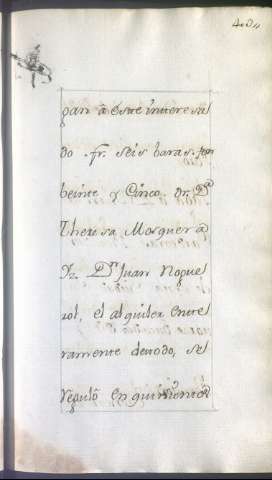 gan â este interesa
do fr. seis baras, por
beinte y Cinco. dr. Dª
Theresa Mosquera
Jz. Dn Juan Nogue
rol, el alquiler ente
ramente devodo, se
regulô en quinientos